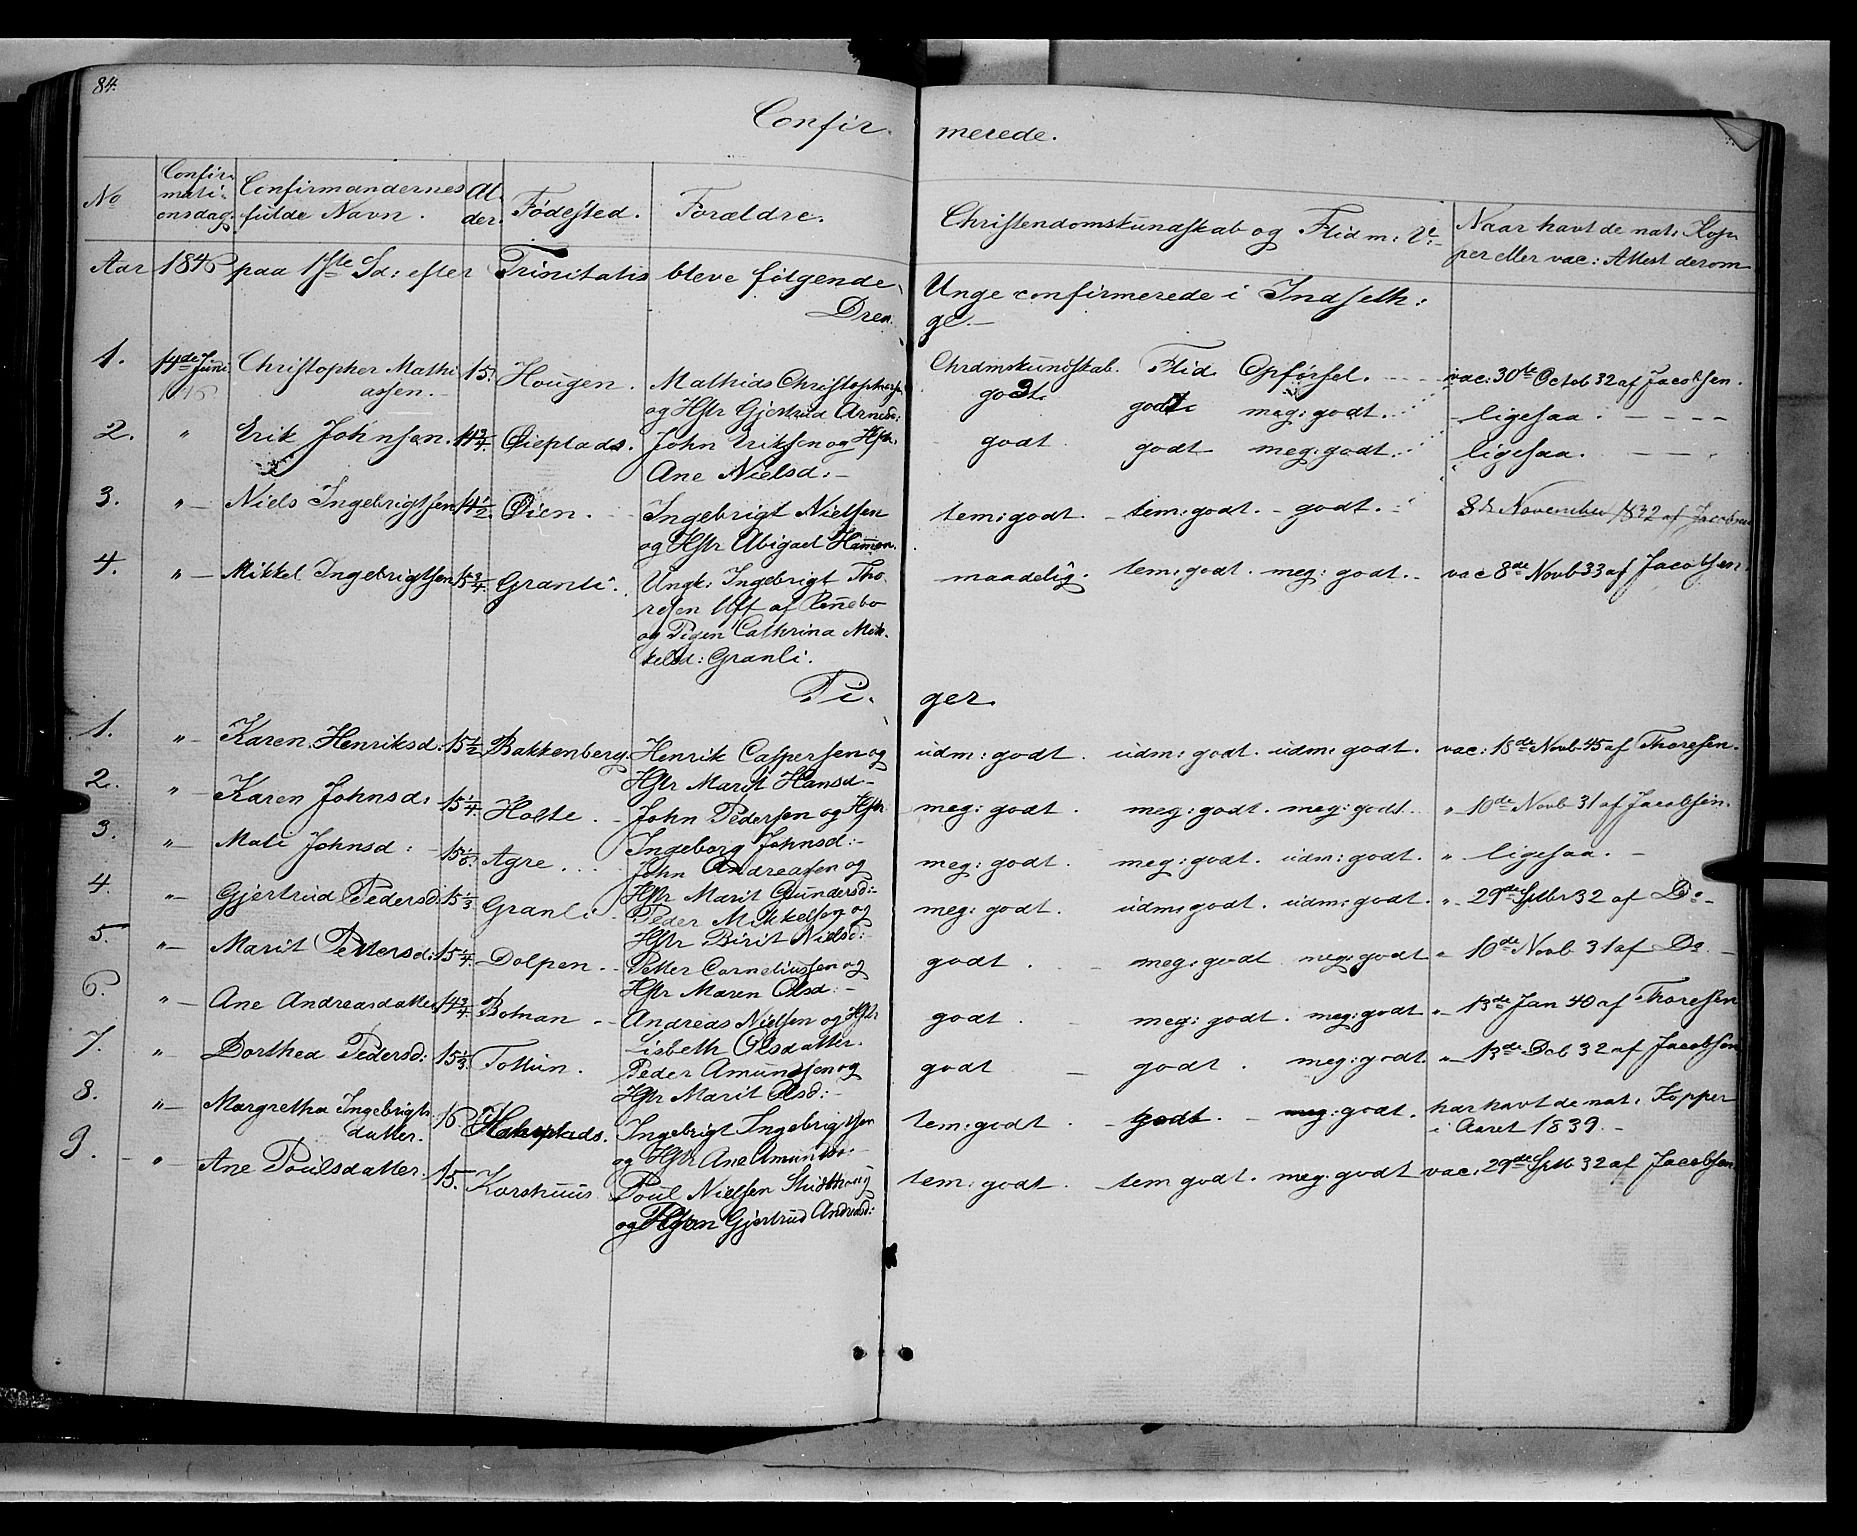 84.
Confir- merede.
No Confir- mati- onsdag. Confirmandernes fulde Navn. Al- der. Fødested. Forældre. Christendomskundskab og Flid m: V:- Naar havt de nat: Kop- per eller vac: Attest derom
Aar 1846 paa 1ste Sd: efter Trinitatis bleve følgende Unge confirmerede i Indseth:
Dren- ge.-
Chrdmskundskab. Flid Opførsel.
1. 14de Juni 1846 Christopher Mathi- 15. Hougen. Mathias Christophersen godt. godt meg: godt. vac: 30te Octob 32 af Jacobsen.
assen. og Hstr Gjertrud Arnsd: ligesaa.
2. " Erik Johnsen. 14 3/4. Øieplads. John Eriksen og Hstr. godt. godt meg: godt. ligesaa.
Ane Nielsd:-
3. " Niels Ingebrigtsen 14 1/2. Øien. Ingebrigt Nielsen tem: godt tem: godt. godt. 8de November 1832 af Jacobsen
og Hstr Abigael Hansen.
4. " Mikkel Ingebrigtsen 15 3/4 Granli. Ungk: Ingebrigt Tho- maadelig. tem: godt. meg: godt. vac 8de Novb 33 af Jacobsen
resen Uft af Rennebo
og Pigen Cathrina Mik-
kelsd: Granli.
Pi- ger.
1. " Karen Henriksd. 15 1/2 Bakkenberg. Henrik Caspersen og udm: godt. udm: godt. udm: godt. vac: 18de Novb 45 af Thoresen.
Hstr Marit Hansd-
2. " Karen Johnsd: 15 1/4 Holte. John Pedersen og Hstr meg: godt. meg: godt. meg: godt. " 10de Novb 31 af Jacobsen.
Ingeborg Johnsd:-
3. " Mali Johnsd: 15 1/6. Agre. John Andreasen og meg: godt. meg: godt. udm: godt. " ligesaa.
Hstr Marit Gundersd:-
4. " Gjertrud Pedersd. 15 1/3 Granli Peder Mikkelsen og meg: godt. udm: godt. udm: godt. " 29de Septbr 32 af Do-
Hstr Birit Nielsd:-
5. " Marit Pettersd: 15 1/4. Dolpen. Petter Corneliussen og godt. meg: godt meg: godt " 10de Novb 31 af Do
Hstr Maren Olsd:-
6. " Ane Andreasdatter 14 3/4 Bolman Andreas Nielsen og Hstr godt. meg: godt. meg: godt " 13de Jan 40 af Thoresen
Lisbeth Olsdatter.
7. " Dorthea Pedersd: 15 1/3. Tollun. Peder Amundsen og godt godt. meg: godt " 13de Deb 32 af Jacobsen
Hstr Marit Olsd:-
8. " Margretha Ingebrigts- 16 Ingebrigt Ingebrigtsen tem: godt. godt. meg: godt. har havt de nat: Kopper
datter. og Hstr Ane Amundsd. i Aaret 1839.
9. " Ane Poulsdatter. 15. Korshuus. Poul Nielsen tem: godt. tem godt. meg: godt vac: 29de Septb 32 af Jacobsen
og Gjertrud Andreasd: